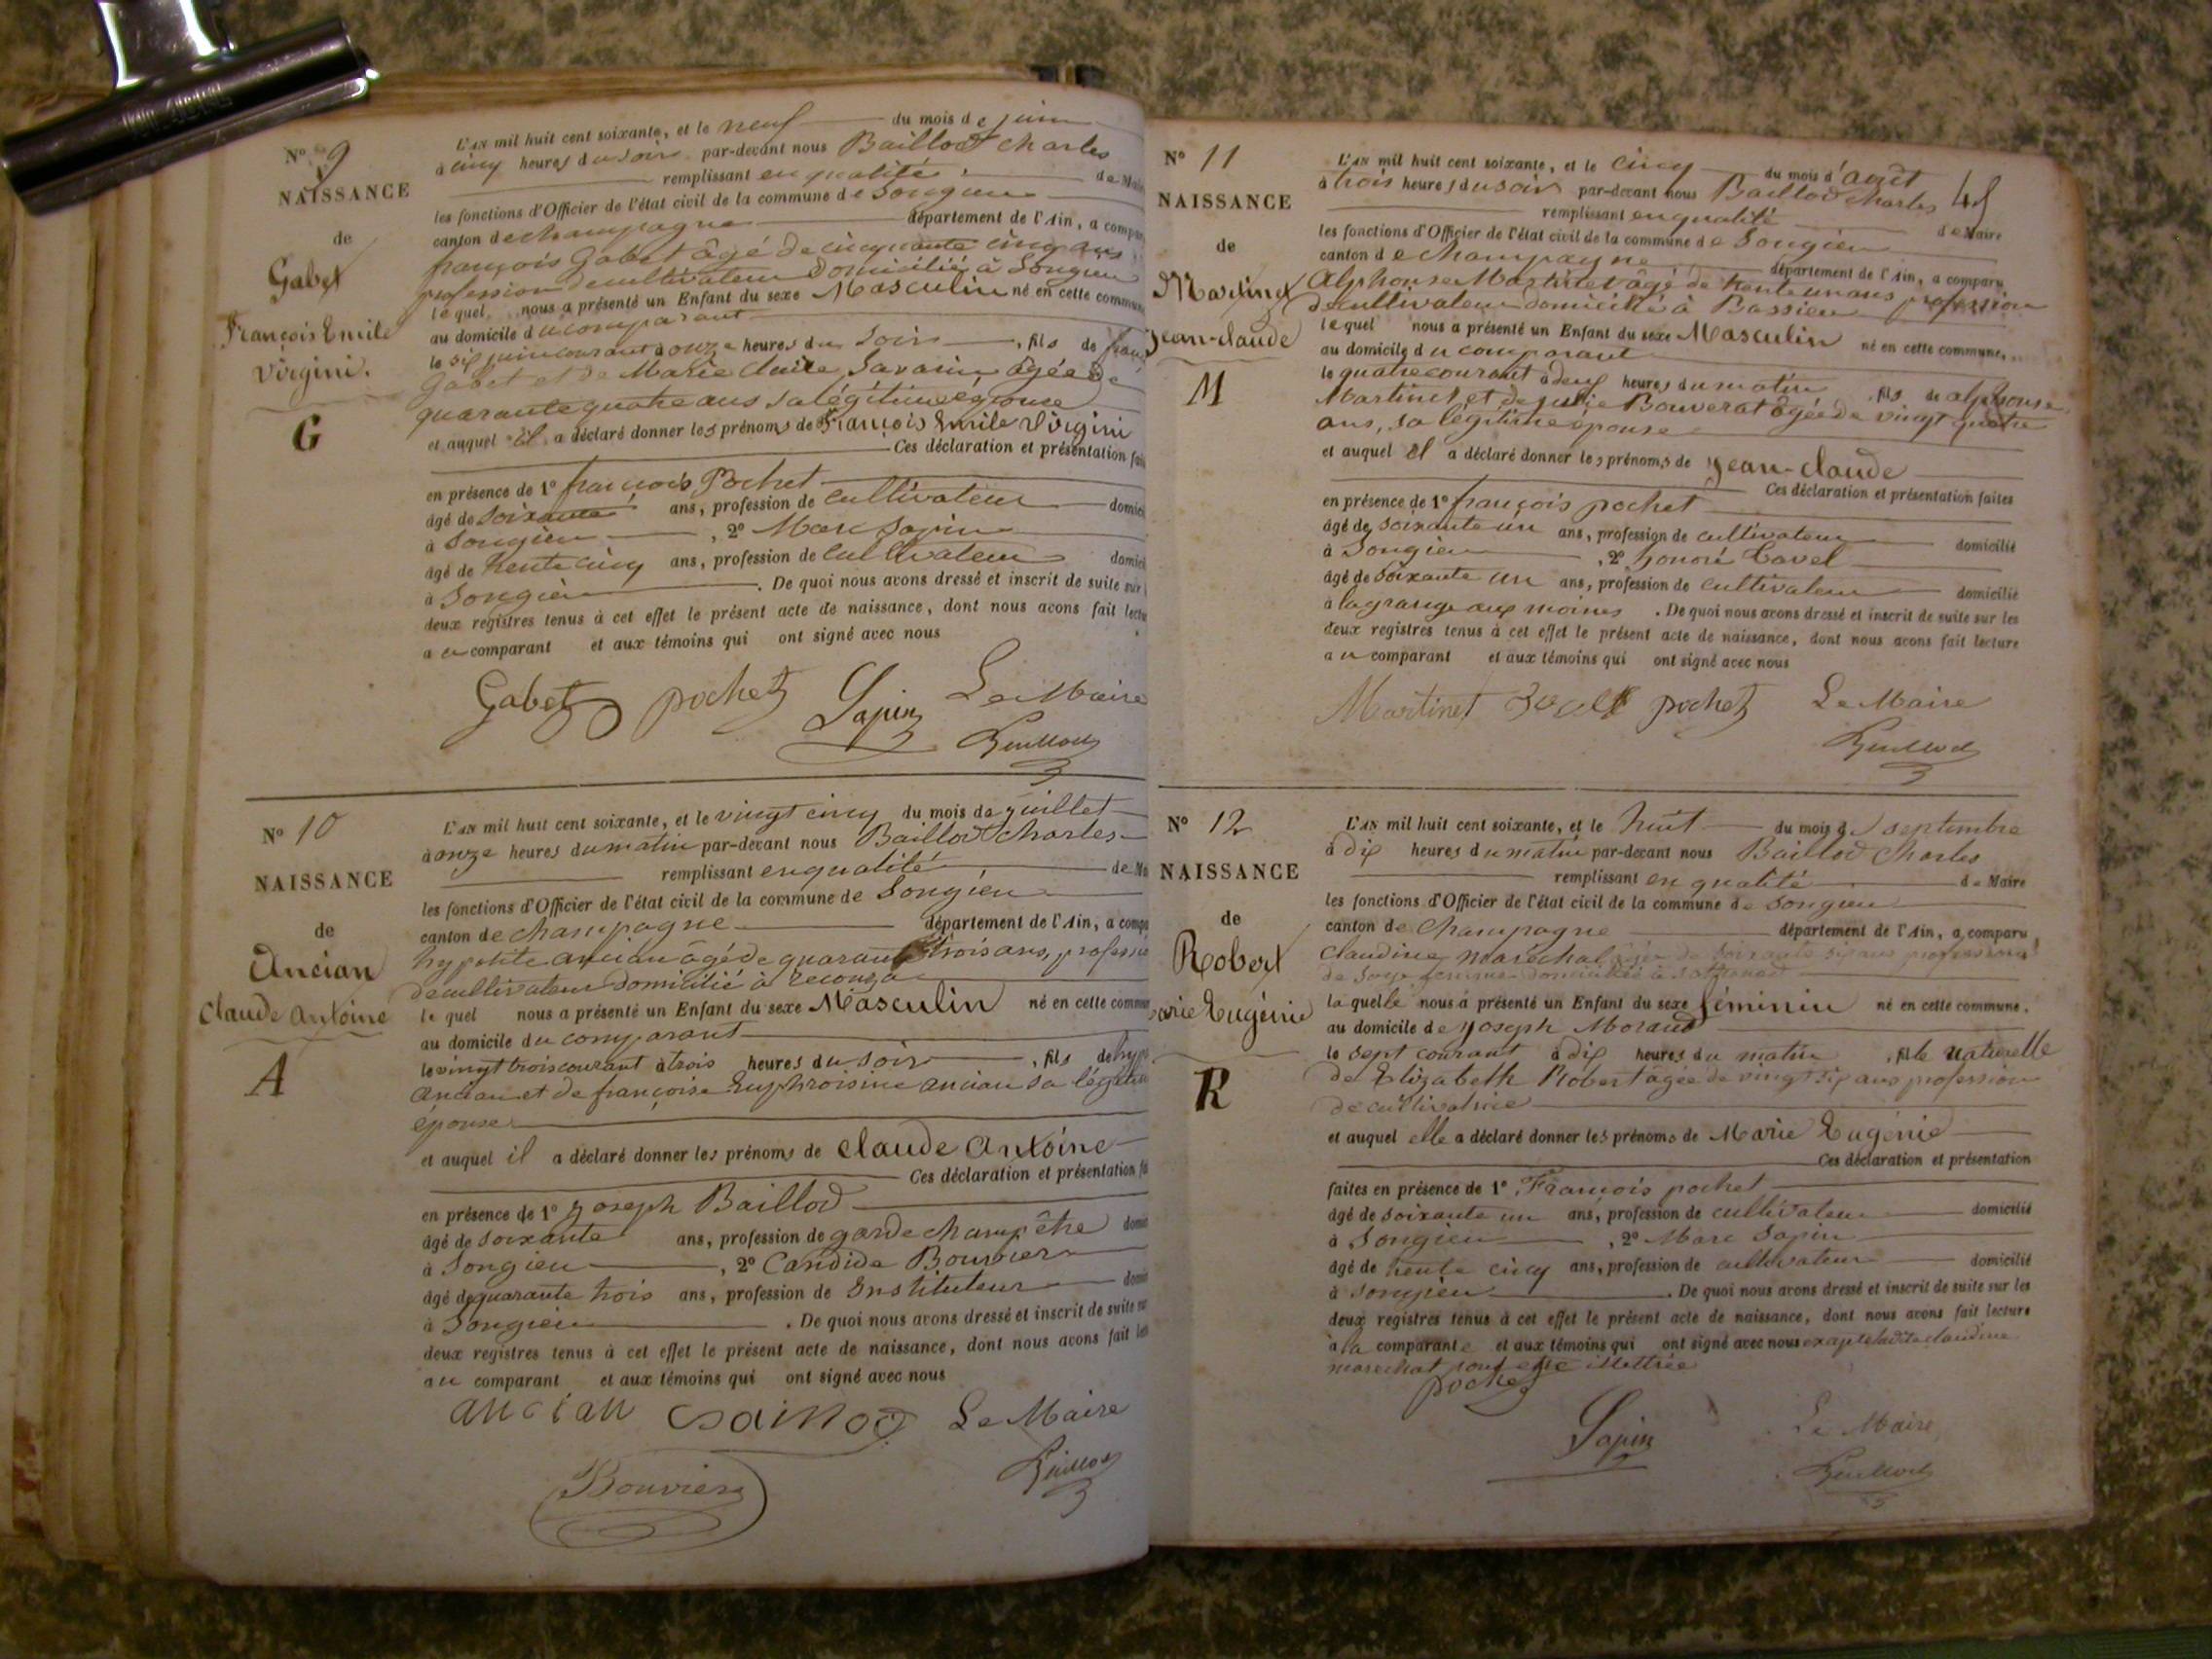 N° 9
NAISSANCE
de
Gabet
François Emile
Virgini.
G
L'AN mil huit cent soixante, et le neuf du mois de juin
à cinq heures du soir par-devant nous Baillod Charles
remplissant en qualité de
les fonctions d'Officier de l'état civil de la commune de Songieu
canton de champagne département de l'Ain, a
françois Gabet âgé de cinquante cinq ans
profession de cultivateur domicilié à Songieu
lequel nous a présenté un Enfant du sexe Masculin né en cette
au domicile du comparant
le six juin courant à onze heures du soir, fils de
Gabet et de Marie claire Savarin âgée de
quarante quatre ans sa légitime épouse
et auquel il a déclaré donner les prénoms de François Emile Virgini
Ces déclaration et présentation
en présence de 1° françois Pochet
âgé de soixante ans, profession de cultivateur
à Songieu, 2° Marc Sapin
âgé de trente cinq ans, profession de cultivateur
à Songieu. De quoi nous avons dressé et inscrit de suite sur
deux registres tenus à cet effet le présent acte de naissance, dont nous avons fait
au comparant et aux témoins qui ont signé avec nous
Gabet pochet Sapin Le Maire
Baillod
N° 10
NAISSANCE
de
Ancian
Claude Antoine
A
L'AN mil huit cent soixante, et le vingt cinq du mois de juillet
à onze heures du matin par-devant nous Baillod Charles
remplissant en qualité de
les fonctions d'Officier de l'état civil de la commune de Songieu
canton de champagne département de l'Ain, a
hypolite ancian âgé de quarante trois ans,
de cultivateur domicilié à
lequel nous a présenté un Enfant du sexe Masculin né en cette
au domicile du comparant
le vingt trois courant à trois heures du soir, fils de
Ancian et de françoise Euphroisine ancian sa légitime
épouse
et auquel il a déclaré donner les prénoms de Claude Antoine
Ces déclaration et présentation
en présence de 1° joseph Baillod
âgé de soixante ans, profession de garde champêtre
à Songieu, 2° Candide Bouvier
âgé de quarante trois ans, profession de Instituteur
à Songieu. De quoi nous avons dressé et inscrit de suite
deux registres tenus à cet effet le présent acte de naissance, dont nous avons fait
au comparant et aux témoins qui ont signé avec nous
ancian Le Maire
Bouvier Baillod
N° 11
NAISSANCE
de
Martinet
Jean-claude
M
L'AN mil huit cent soixante, et le cinq du mois d'août
à trois heures du soir par-devant nous Baillod Charles
remplissant en qualité de Maire
les fonctions d'Officier de l'état civil de la commune de Songieu
canton de Champagne département de l'Ain, a comparu
Alphonse Martinet âgé de trente un ans profession
de cultivateur domicilié à Bassieu
lequel nous a présenté un Enfant du sexe Masculin né en cette commune,
au domicile du comparant
le quatre courant à deux heures du matin, fils de alphonse
Martinet et de julie Bouverat âgée de vingt quatre
ans, sa légitime épouse
et auquel il a déclaré donner les prénoms de jean-claude
Ces déclaration et présentation faites
en présence de 1° françois pochet
âgé de soixante un ans, profession de cultivateur domicilié
à Songieu, 2° honoré
âgé de soixante un ans, profession de cultivateur domicilié
à la grange aux moines. De quoi nous avons dressé et inscrit de suite sur les
deux registres tenus à cet effet le présent acte de naissance, dont nous avons fait lecture
au comparant et aux témoins qui ont signé avec nous
Martinet pochet Le Maire
Baillod
N° 12
NAISSANCE
de
Robert
Eugénie
R
L'AN mil huit cent soixante, et le huit du mois de septembre
à dix heures du matin par-devant nous Baillod Charles
remplissant en qualité de Maire
les fonctions d'Officier de l'état civil de la commune de Songieu
canton de Champagne département de l'Ain, a comparu
Claudine maréchal âgée de soixante six ans profession
de sage femme domiciliée à
laquelle nous a présenté un Enfant du sexe féminin né en cette commune.
au domicile de joseph Morand
le sept courant à dix heures du matin, fille naturelle
de Elizabeth Robert âgée de vingt six ans profession
de cultivatrice
et auquel elle a déclaré donner les prénoms de Marie Eugénie
Ces déclaration et présentation
faites en présence de 1° François pochet
âgé de soixante un ans, profession de cultivateur domicilié
à Songieu, 2° Marc Sapin
âgé de trente cinq ans, profession de cultivateur domicilié
à Songieu. De quoi nous avons dressé et inscrit de suite sur les
deux registres tenus à cet effet le présent acte de naissance, dont nous avons fait lecture
à la comparante et aux témoins qui ont signé avec nous excepté ladite claudine
marechal pour être illettrée
pochet
Sapin Le Maire
Baillod